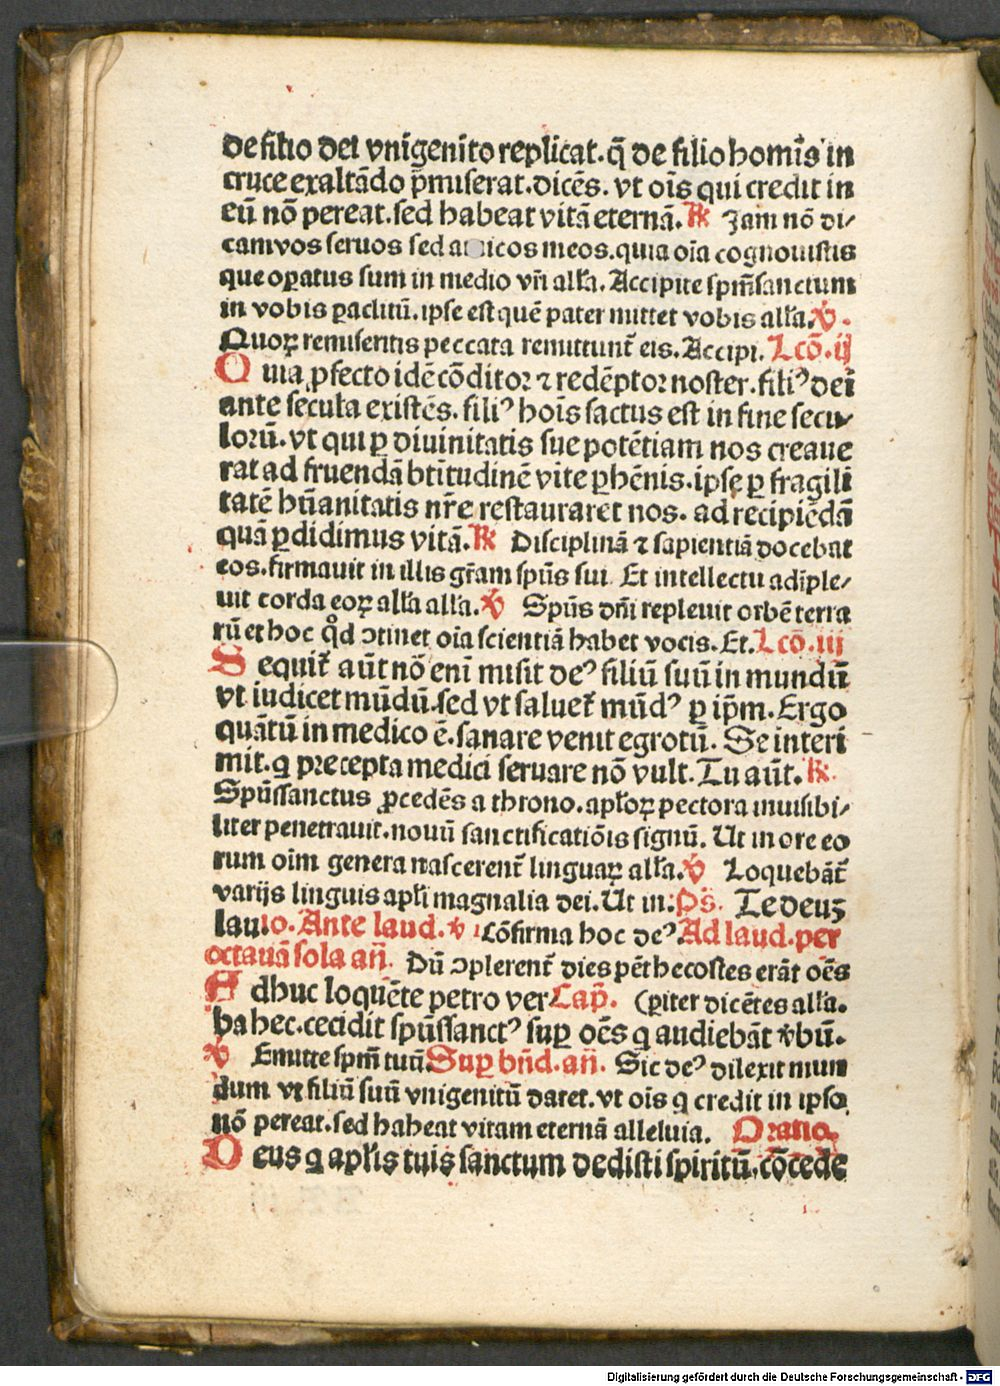 de filio dei vnigenito replicat. q̃ de filio homĩs in
cruce exaltādo p̄miserat. dicēs. vt oīs qui credit in
eū nō pereat. sed habeat vitā eternā. ℞ Jam nō di-
cam vos seruos sed amicos meos. quia oīa cognouistis
que oꝑatus sum in medio vr̄i alľa. Accipite sp̄m sanctum
in vobis ꝑaclitū. ipse est quē pater mittet vobis alľa. ℣.
Quoꝝ remiseritis peccata remittunt̄ eis. Accipi. Lcō. ij
Quia ꝓfecto idē cōditor ⁊ redēptor noster. filiꝰ dei
ante secula existēs. filiꝰ hoīs factus est in fine secu-
lorū. vt qui ꝑ diuinitatis sue potētiam nos creaue
rat ad fruendā btītudinē vite ꝑhēnis. ipse ꝑ fragili
tatē hūanitatis nr̄e restauraret nos. ad recipiēdā
quā ꝑdidimus vitā. ℞ Disciplinā ⁊ sapientiā docebat
eos. firmauit in illis gr̄am spūs sui Et intellectu adīple-
uit corda eoꝝ alľa alľa. ℣ Spūs dn̄i repleuit orbē terra
rū et hoc qͦd ↄtinet oīa scientiā habet vocis. Et. Lcō. iij
Sequit̄ aūt nō enī misit deꝰ filiū suū in mundū
vt iudicet mūdū. sed vt saluet̄ mūdꝰ ꝑ ip̄m. Ergo
quātū in medico ē. sanare venit egrotū. Se interi
mit. q precepta medici seruare nō vult. Tu aūt. ℞.
Spūssanctus ꝓcedēs a throno. apľoꝝ pectora inuisibi-
liter penetrauit. nouū sanctificatiōis signū. Ut in ore eo
rum oīm genera nascerent̄ linguaꝝ alľa. ℣ Loquebāt̄
varijs linguis apľi magnalia dei. Ut in: Ps̄. Te deuꝫ
lauio. Ante laud. ℣ Cōfirma hoc deꝰ Ad laud. per
octauā sola an̄. Dū ↄplerent̄ dies pēthecostes erāt oēs
Adhuc loquēte petro ver- Cap̄. (ꝑiter dicētes alľa.
ba hec. cecidit spūssanctꝰ suꝑ oēs q audiebāt v̄bū.
℣ Emitte sp̄m tuū Suꝑ bn̄d. an̄. Sic deꝰ dilexit mun
dum vt filiū suū vnigenitū daret. vt oīs q credit in ipso
nō pereat. sed habeat vitam eternā alleluia. Oratio.
Deus q apľis tuis sanctum dedisti spiritū. cōcede
Digitalisierung gefördert durch die Deutsche Forschungsgemeinschaft - DFG